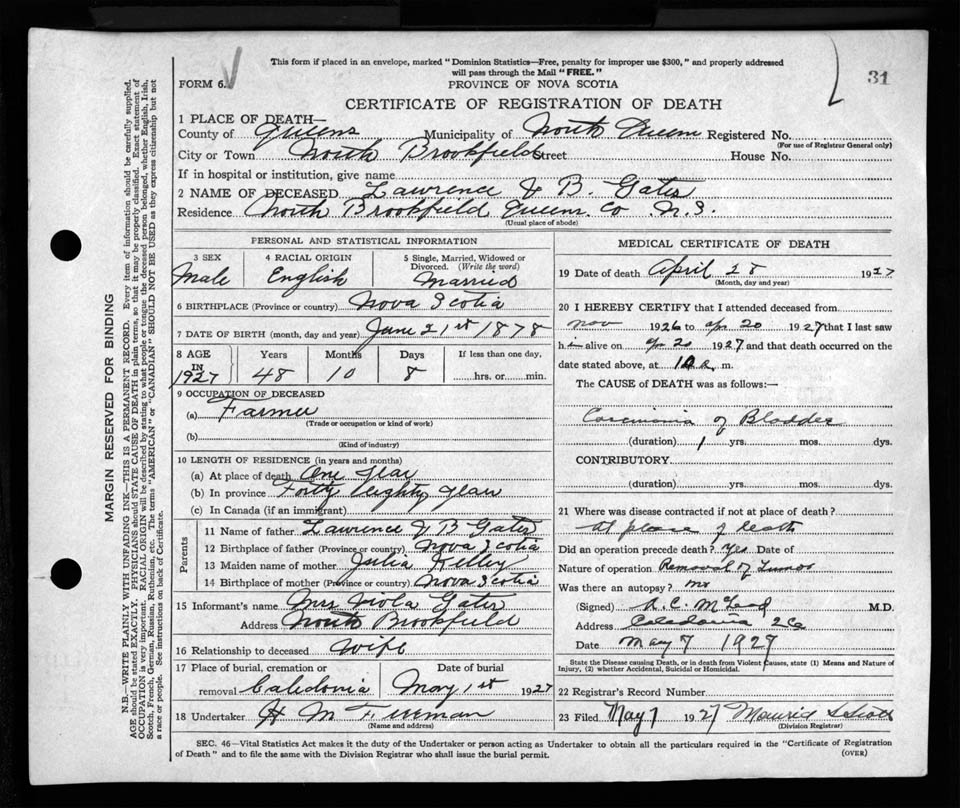 This form if placed in an envelope, marked "Dominion Statistics—Free, penalty for improper use $300," and properly addressed
will pass through the Mail "FREE."
FORM 6.
31
PROVINCE OF NOVA SCOTIA
CERTIFICATE OF REGISTRATION OF DEATH
1 PLACE OF DEATH—
County of Queens Municipality of North Queens Registered No.
(For use of Registrar General only)
City or Town North Brookfield Street House No.
If in hospital or institution, give name
2 NAME OF DECEASED Lawrence J B. Gates
Residence North Brookfield Queens Co N.S.
(Usual place of abode)
PERSONAL AND STATISTICAL INFORMATION
3 SEX Male
4 RACIAL ORIGIN English
5 Single, Married, Widowed or Divorced. (Write the word) Married
6 BIRTHPLACE (Province or country) Nova Scotia
7 DATE OF BIRTH (month, day and year) June 21st 1878
8 AGE IN 1927 Years 48 Months 10 Days 8 If less than one day, hrs. or min.
9 OCCUPATION OF DECEASED
(a) Farmer
(Trade or occupation or kind of work)
(b)
(Kind of industry)
10 LENGTH OF RESIDENCE (in years and months)
(a) At place of death One Year
(b) In province Forty eighty year
(c) In Canada (if an immigrant)
Parents
11 Name of father Lawrence J B Gates
12 Birthplace of father (Province or country) Nova Scotia
13 Maiden name of mother Julia Kelley
14 Birthplace of mother (Province or country) Nova Scotia
15 Informant's name Mrs Viola Gates
Address North Brookfield
16 Relationship to deceased Wife
17 Place of burial, cremation or removal Caledonia Date of burial May 1st 1927
18 Undertaker H M Freeman
(Name and address)
MEDICAL CERTIFICATE OF DEATH
19 Date of death April 28 1927
(Month, day and year)
20 I HEREBY CERTIFY that I attended deceased from
Nov 1926 to Apr 20 1927 that I last saw
him alive on Apr 20 1927 and that death occurred on the
date stated above, at m.
The CAUSE of DEATH was as follows:—
Carcinoma of Bladder
(duration) 1 yrs. mos. dys.
CONTRIBUTORY
(duration) yrs. mos. dys.
21 Where was disease contracted if not at place of death?
At place of death
Did an operation precede death? Yes Date of
Nature of operation Removal of Tumor
Was there an autopsy? no
(Signed) A. C. McLeod M.D.
Address Caledonia
Date May 7 1927
State the Disease causing Death, or in death from Violent Causes, state (1) Means and Nature of
Injury, (2) whether Accidental, Suicidal or Homicidal.
22 Registrar's Record Number
23 Filed May 7 1927
(Division Registrar)
SEC. 46—Vital Statistics Act makes it the duty of the Undertaker or person acting as Undertaker to obtain all the particulars required in the "Certificate of Registration
of Death" and to file the same with the Division Registrar who shall issue the burial permit.
(OVER)
MARGIN RESERVED FOR BINDING
N.B.—WRITE PLAINLY WITH UNFADING INK—THIS IS A PERMANENT RECORD. Every item of information should be carefully supplied.
AGE should be stated EXACTLY. PHYSICIANS should STATE CAUSE OF DEATH in plain terms, so that it may be properly classified. Exact statement of
OCCUPATION is very important. RACIAL ORIGIN will be described by stating to what people or tongue the deceased person belonged, whether English, Irish,
Scotch, French, German, Russian, Ruthenian, etc. The terms "AMERICAN" or "CANADIAN" SHOULD NOT BE USED as they express citizenship but not
a race or people. See instructions on back of Certificate.